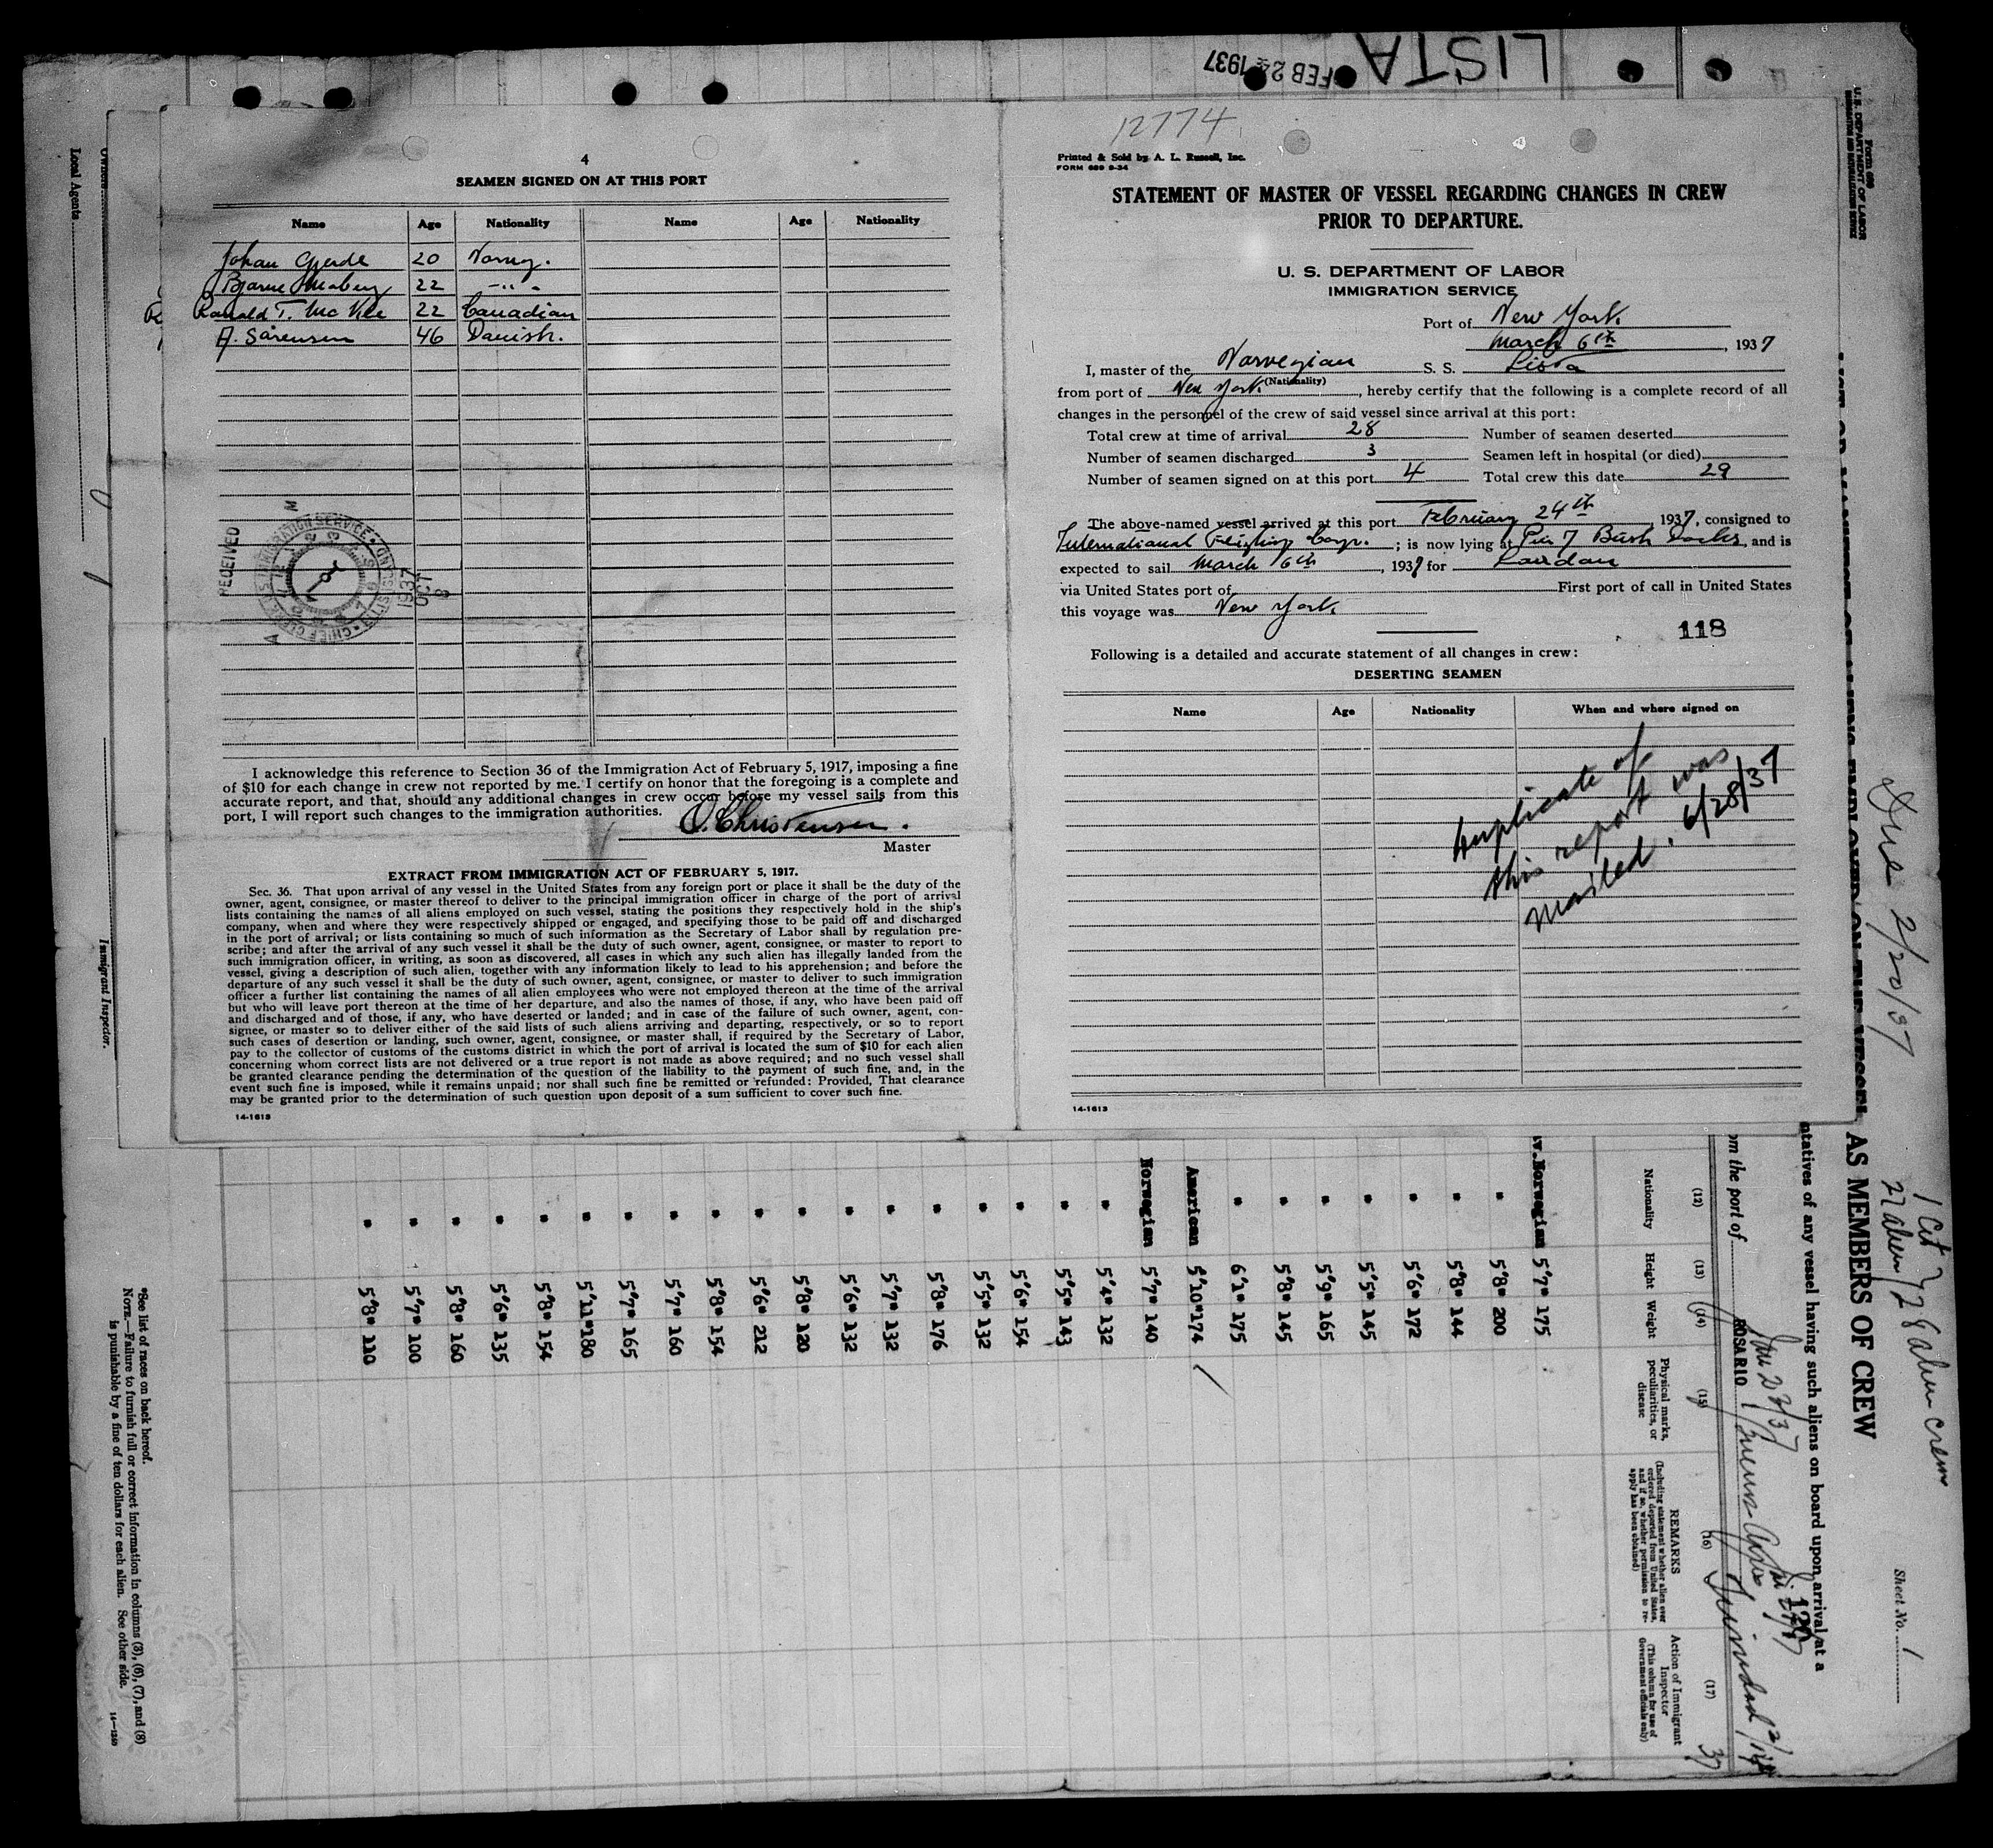 LISTA
FEB 24 1937
4
SEAMEN SIGNED ON AT THIS PORT
Name Age Nationality Name Age Nationality
Johan Gjerde 20 Norweg.
Bjarne 22 -"-
Ronald T. Mc Kee 22 Canadian
A. Sørensen 46 Danish.
RECEIVED
I acknowledge this reference to Section 36 of the Immigration Act of February 5, 1917, imposing a fine
of $10 for each change in crew not reported by me. I certify on honor that the foregoing is a complete and
accurate report, and that, should any additional changes in crew occur before my vessel sails from this
port, I will report such changes to the immigration authorities.
O. Christensen.
Master
EXTRACT FROM IMMIGRATION ACT OF FEBRUARY 5, 1917.
Sec. 36. That upon arrival of any vessel in the United States from any foreign port or place it shall be the duty of the
owner, agent, consignee, or master thereof to deliver to the principal immigration officer in charge of the port of arrival
lists containing the names of all aliens employed on such vessel, stating the positions they respectively hold in the ship's
company, when and where they were respectively shipped or engaged, and specifying those to be paid off and discharged
in the port of arrival; or lists containing so much of such information as the Secretary of Labor shall by regulation pre-
scribe; and after the arrival of any such vessel it shall be the duty of such owner, agent, consignee, or master to report to
such immigration officer, in writing, as soon as discovered, all cases in which any such alien has illegally landed from the
vessel, giving a description of such alien, together with any information likely to lead to his apprehension; and before the
departure of any such vessel it shall be the duty of such owner, agent, consignee, or master to deliver to such immigration
officer a further list containing the names of all alien employees who were not employed thereon at the time of the arrival
but who will leave port thereon at the time of her departure, and also the names of those, if any, who have been paid off
and discharged and of those, if any, who have deserted or landed; and in case of the failure of such owner, agent, con-
signee, or master so to deliver either of the said lists of such aliens arriving and departing, respectively, or so to report
such cases of desertion or landing, such owner, agent, consignee, or master shall, if required by the Secretary of Labor,
pay to the collector of customs of the customs district in which the port of arrival is located the sum of $10 for each alien
concerning whom correct lists are not delivered or a true report is not made as above required; and no such vessel shall
be granted clearance pending the determination of the question of the liability to the payment of such fine, and, in the
event such fine is imposed, while it remains unpaid; nor shall such fine be remitted or refunded: Provided, That clearance
may be granted prior to the determination of such question upon deposit of a sum sufficient to cover such fine.
14-1613
12774
Printed & Sold by A. L. Russell, Inc.
FORM 689 9-34
STATEMENT OF MASTER OF VESSEL REGARDING CHANGES IN CREW
PRIOR TO DEPARTURE.
U. S. DEPARTMENT OF LABOR
IMMIGRATION SERVICE
Port of New York
March 6th, 1937
I, master of the Norwegian S. S. Lista
(Nationality)
from port of New York, hereby certify that the following is a complete record of all
changes in the personnel of the crew of said vessel since arrival at this port:
Total crew at time of arrival 28 Number of seamen deserted
Number of seamen discharged 3 Seamen left in hospital (or died)
Number of seamen signed on at this port 4 Total crew this date 29
The above-named vessel arrived at this port February 24th, 1937, consigned to
International Freighting Corp.; is now lying at Pier 7 Bush Docks, and is
expected to sail March 6th, 1937 for London
via United States port of First port of call in United States
this voyage was New York
118
Following is a detailed and accurate statement of all changes in crew:
DESERTING SEAMEN
Name Age Nationality When and where signed on
Duplicate of
this report was
mailed. 6/28/37
14-1613
Owners
Local Agents
Immigrant Inspector.
Form 689
U. S. DEPARTMENT OF LABOR
IMMIGRATION AND NATURALIZATION SERVICE
Due 2/20/37
1 Cit
27 alien
28 alien crew
Sheet No. 1
AS MEMBERS OF CREW
ntatives of any vessel having such aliens on board upon arrival at a
120
om the port of ROSARIO Jan 23/37 Buenos Aires Trinidad
(12) (13) (14) (15) (16) (17)
Nationality Height Weight Physical marks, peculiarities, or disease
REMARKS
(Including statement whether alien ever ordered deported from United States, and if so, whether permission to re-apply has been obtained)
Action of Immigrant Inspector
(This column for use of Government officials only)
w.Norwegian 5'7" 175
" 5'8" 200
" 5'8" 144
" 5'6" 172
" 5'5" 145
" 5'9" 165
" 5'8" 145
" 6'1" 175
American 5'10" 174
Norwegian 5'7" 140
" 5'4" 132
" 5'5" 143
" 5'6" 154
" 5'5" 132
" 5'8" 176
" 5'7" 132
" 5'6" 132
" 5'8" 120
" 5'6" 212
" 5'8" 154
" 5'7" 160
" 5'7" 165
" 5'11" 180
" 5'8" 154
" 5'6" 135
" 5'8" 160
" 5'7" 100
" 5'8" 110
*See list of races on back hereof.
NOTE.—Failure to furnish full or correct information in columns (3), (6), (7), and (8)
is punishable by a fine of ten dollars for each alien. See other side.
14—1240